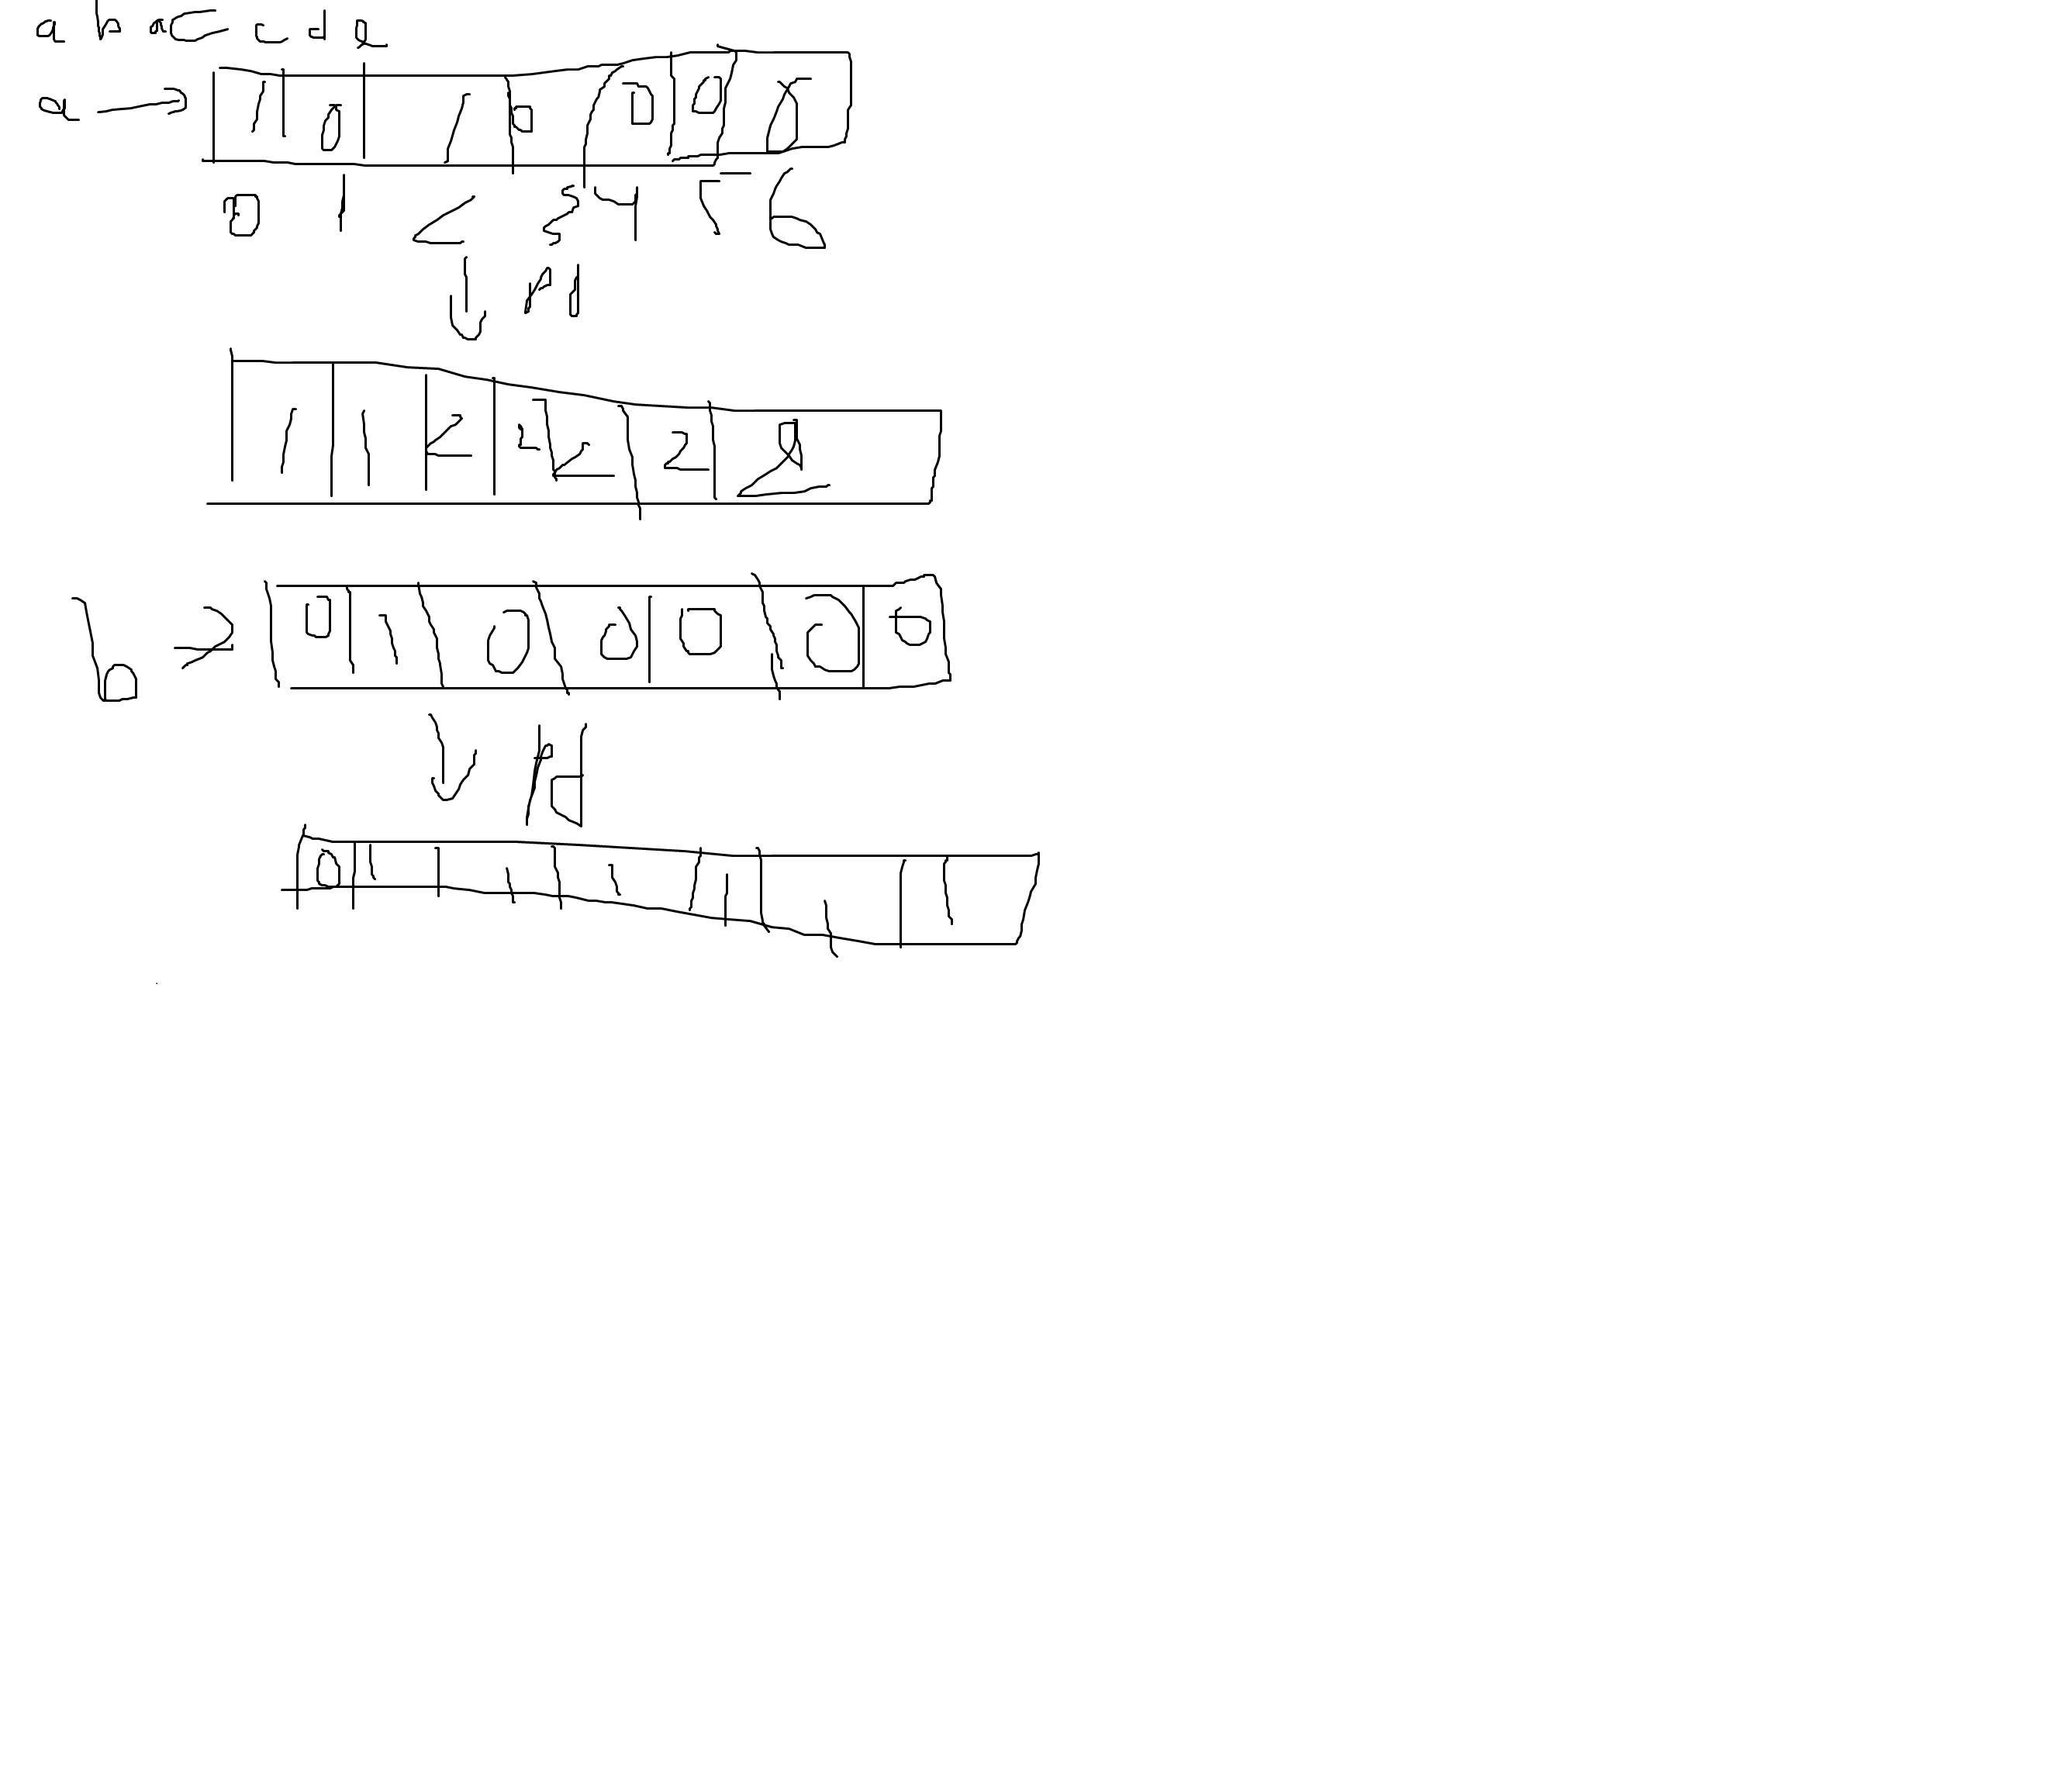 a b a c c d e
a → 1 0 1 0 0 0 0
0 1 2 3 4 5 6
↓ pd
1 1 2 2 2 2 2
b → 0 1 0 0 0 0 0
↓ pd
0 1 1 1 1 1 1